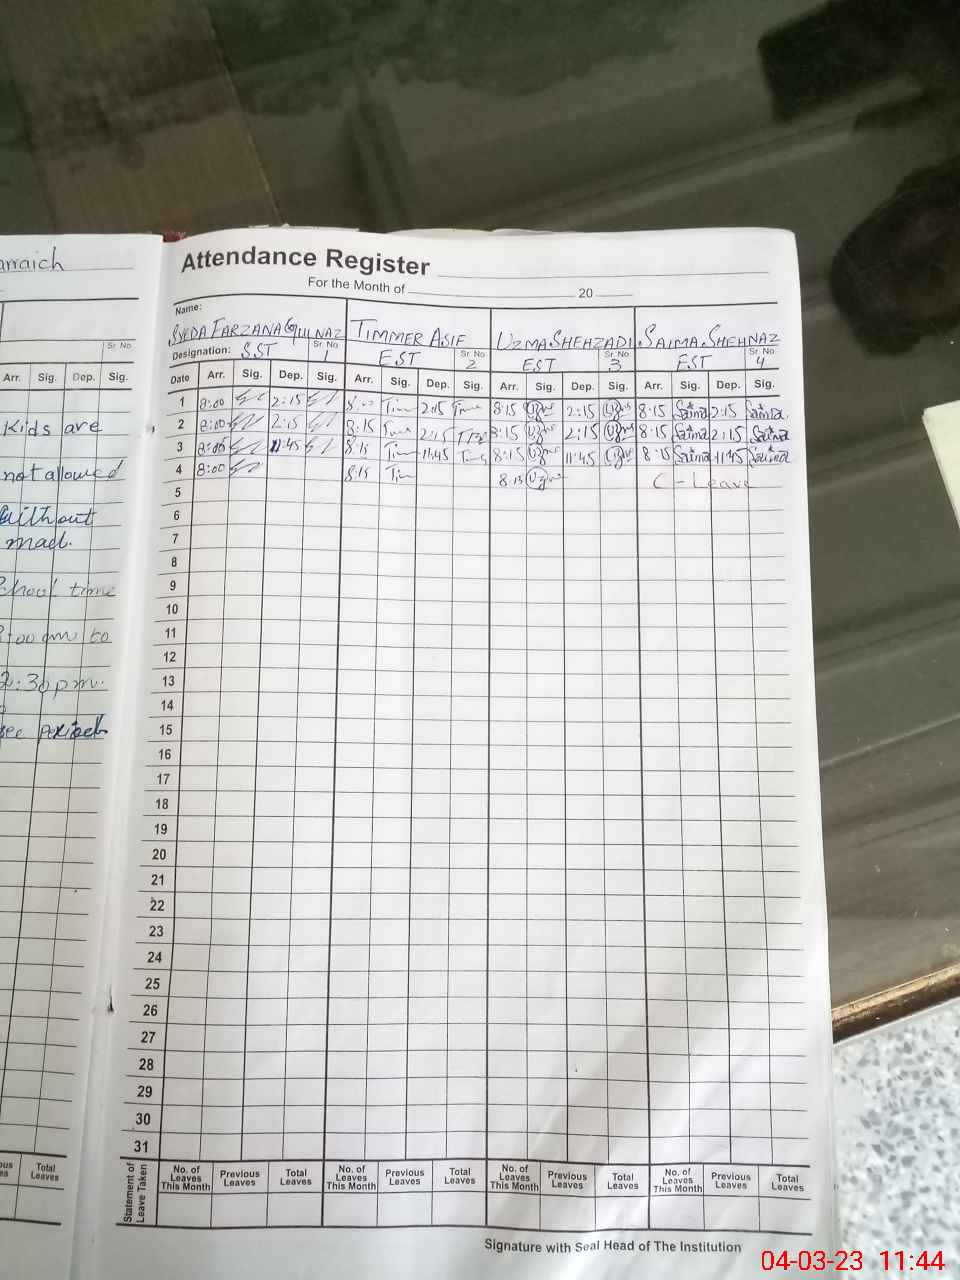 arraich
Sr. No.
Arr. Sig. Dep. Sig.
Kids are
not allowed
without
mad.
school time
8:00 am to
2:30 pm.
period
ous Total
es Leaves
Attendance Register
For the Month of 20
Name:
SYEDA FARZANA GULNAZ TIMMER ASIF UZMA SHEHZADI SAIMA SHEHNAZ
Designation: S.ST Sr. No. 1 E.ST Sr. No. 2 EST Sr. No. 3 E.ST Sr. No. 4
Date Arr. Sig. Dep. Sig. Arr. Sig. Dep. Sig. Arr. Sig. Dep. Sig. Arr. Sig. Dep. Sig.
1 8:00 2:15 2:15 8:15 2:15 8:15 Saima 2:15 Saima
2 8:00 2:15 8:15 2:15 8:15 2:15 8:15 Saima 2:15 Saima
3 8:00 11:45 8:15 11:45 8:15 11:45 8:15 Saima 11:45 Saima
4 8:00 8:15 8:15 C - Leave
5
6
7
8
9
10
11
12
13
14
15
16
17
18
19
20
21
22
23
24
25
26
27
28
29
30
31
Statement of Leave Taken
No. of Leaves This Month Previous Leaves Total Leaves No. of Leaves This Month Previous Leaves Total Leaves No. of Leaves This Month Previous Leaves Total Leaves No. of Leaves This Month Previous Leaves Total Leaves
Signature with Seal Head of The Institution
04-03-23 11:44